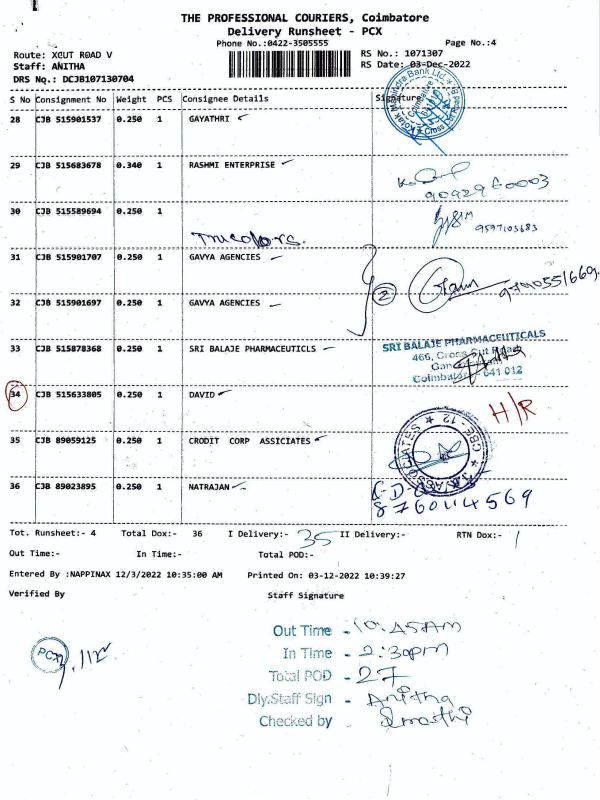 THE PROFESSIONAL COURIERS, Coimbatore
Delivery Runsheet - PCX
Phone No.:0422-3505555 Page No.:4
Route: XCUT ROAD V RS No.: 1071307
Staff: ANITHA RS Date: 03-Dec-2022
DRS No.: DCJB107130704
S No Consignment No Weight PCS Consignee Details Signature
28 CJB 515901537 0.250 1 GAYATHRI
29 CJB 515683678 0.340 1 RASHMI ENTERPRISE
30 CJB 515589694 0.250 1
9597103683
31 CJB 515901707 0.250 1 GAVYA AGENCIES
2
32 CJB 515901697 0.250 1 GAVYA AGENCIES
33 CJB 515878368 0.250 1 SRI BALAJE PHARMACEUTICLS
SRI BALAJE PHARMACEUTICALS
466, Cross Cut Road
Coimbatore - 641 012
34 CJB 515633805 0.250 1 DAVID
H/R
35 CJB 89059125 0.250 1 CRODIT CORP ASSICIATES
36 CJB 89023895 0.250 1 NATRAJAN
8760114569
Tot. Runsheet:- 4 Total Dox:- 36 I Delivery:- 35 II Delivery:- RTN Dox:- 1
Out Time:- In Time:- Total POD:-
Entered By :NAPPINAX 12/3/2022 10:35:00 AM Printed On: 03-12-2022 10:39:27
Verified By Staff Signature
Out Time - 10.45AM
In Time - 2:30pm
Total POD - 27
Dly.Staff Sign - Anitha
Checked by
PCX